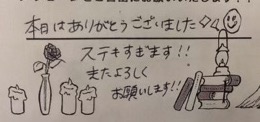 本日はありがとうございました
ステキすぎます!!
またよろしく
お願いします!!